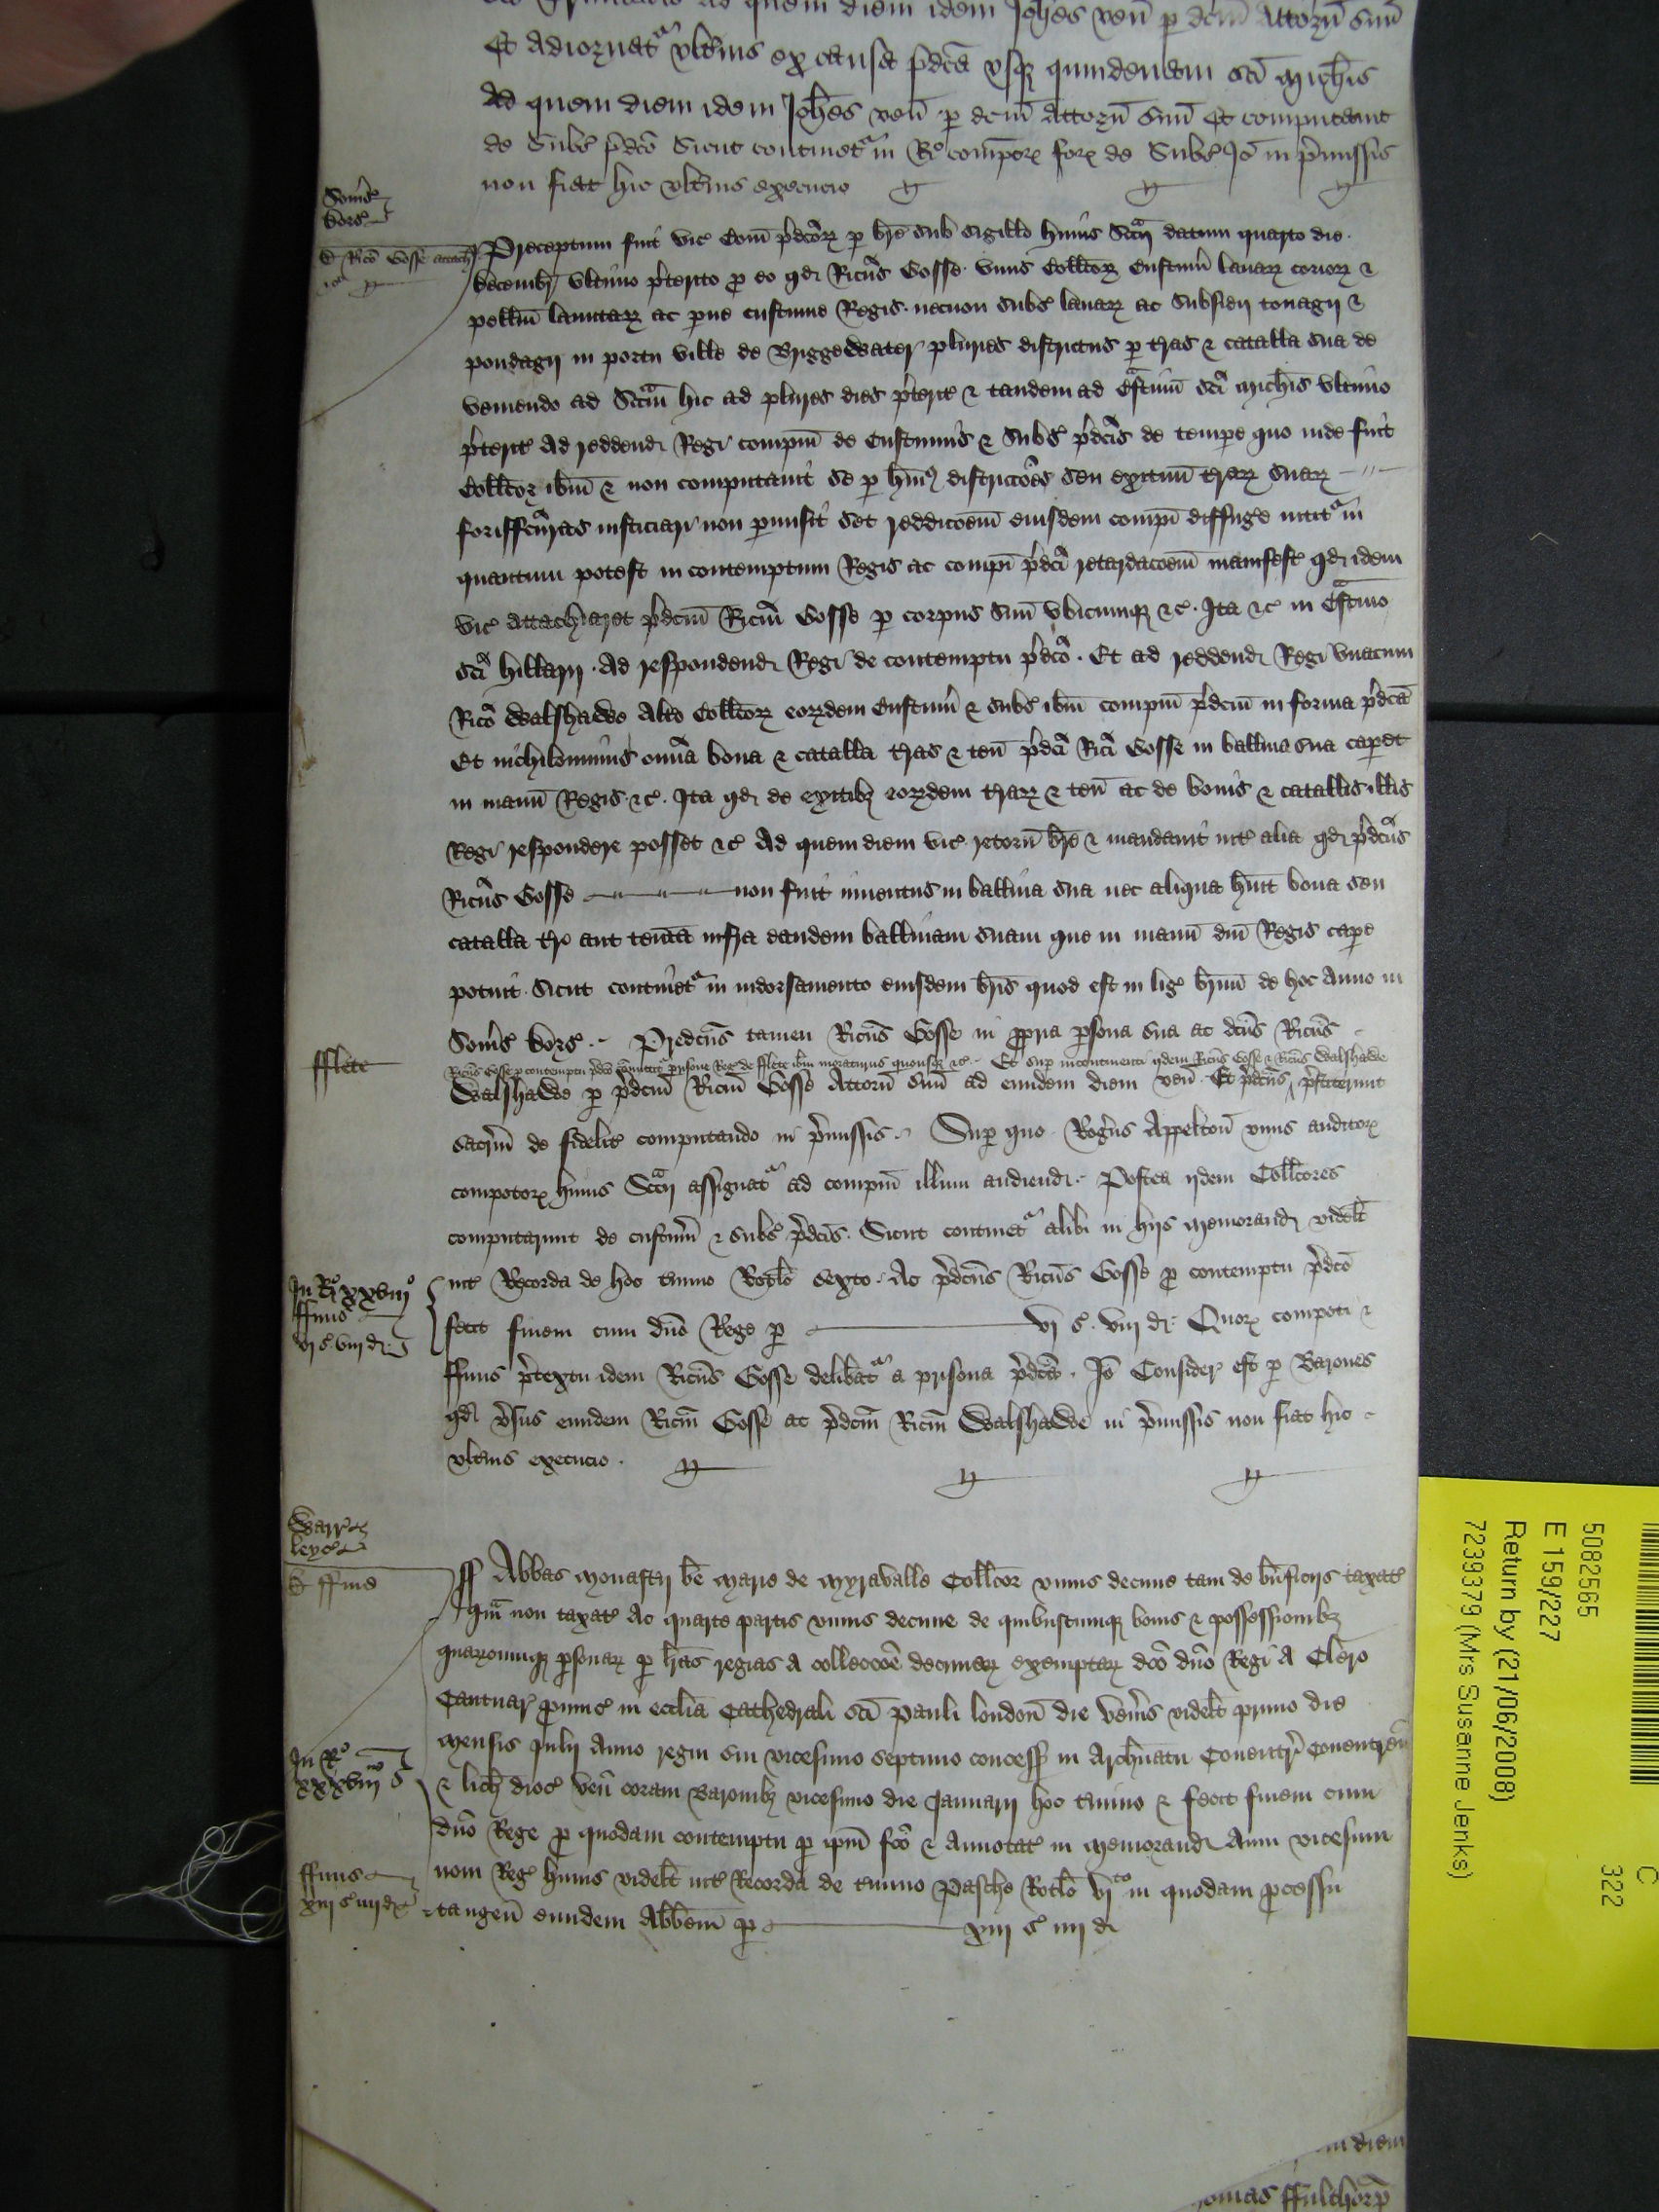 ad quem diem idem Joh̄es ven̄ p dc̄m Attorn̄ suū
Et adiornat᷑ vltius ex causa p̄dc̄a vsq̨ quindenam sc̄i Mich̄is
Ad quem diem idem Joh̄es ven̄ p dc̄m Attorn̄ suū Et computant
de Subs̄ p̄dc̄o Sicut continet᷑ in Ro compotoꝝ foꝝ de Subs̄ Jō in p̄missis
non fiat hic vltius execucio
Som̄s
Dors̄
Ð Rico Gosse attach
Preceptum fuit vic̄ Com̄ p̄dc̄oꝝ p br̄e sub sigillo huius Sccīi datum quarto die
Decembr̄ vltimo p̄terito p eo qd Ric̄us Gosse vnus Coll̄coꝝ Custum̄ lanaꝝ corioꝝ &
pelliū lanutaꝝ ac pue custume Regis necnon subs̄ lanaꝝ ac subsidii tonagii &
pondagii in portu ville de Briggewater plures districtus p t̄ras & catalla sua de
veniendo ad Scc̄m hic ad plures dies p̄terit̄ & tandem ad C̄stinū sc̄i Mich̄is vltimo
p̄terit̄ Ad reddend Regi compm̄ de Custumis & Subs̄ p̄dc̄is de tempe quo inde fuit
Coll̄coꝝ ib̄m & non computauit se p hm̄oi districc̄oes seu exituū t̄raꝝ suaꝝ
forisfc̄uras iusticiari non pmisit set reddic̄oem eiusdem compi diffuḡe nitit᷑ in
quantum potest in contemptum Regis ac compi p̄dc̄i retardac̄oem manifest̄ qd idem
vic̄ attachiaret p̄dc̄m Ric̄m Gosse p corpus suū vbicumq̨ &c̄ Ita &c̄ in C̄stino
sc̄i Hillarii Ad respondend Regi de contemptu p̄dc̄o Et ad reddend Regi vnacum
Rico Walshawe Alto Coll̄coꝝ eoꝝdem Custum̄ & subs̄ ib̄m compm̄ p̄dc̄m in forma p̄dc̄a
Et nichilominus om̄ia bona & catalla t̄ras & ten̄ p̄dc̄i Ric̄i Gosse in balliua sua capet
in manū Regis &c̄ Ita qd de exitibȝ eoꝝdem t̄raꝝ & ten̄ ac de bonis & catallis illis
Regi respondere posset &c̄ Ad quem diem vic̄ retorn̄ br̄e & mandauit int̄ alia qd p̄dc̄us
Ric̄us Gosse non fuit inuentus in balliua sua nec aliqua h̄uit bona seu
catalla t̄r̄ aut ten̄ta infra eandem balliuam suam que in manū dn̄i Regis cape
potuit Sicut continet᷑ in indorsamento eiusdem br̄is quod est in liḡ br̄ium de hoc Anno in
Som̄s Dors̄ Predc̄us tamen Ric̄us Gosse in ppria psona sua ac dc̄us Ric̄us
fflete
Ric̄us Gosse p contemptu p̄dc̄o com̄ittit᷑ prisone Reḡ de fflete ib̄m moraturus quousq̨ &c̄ Et sup incontinenti iidem Ric̄us Gosse & Ric̄us Walshawe
Walshawe p p̄dc̄m Ric̄m Gosse Attorn̄ suū ad eundem diem ven̄ Et p̄dc̄us p̄stiterunt
sacr̄m de fidelit̄ computando in p̄missis Sup quo Roḡus Appelton̄ vnus auditoꝝ
compotoꝝ huius Sccīi assignat᷑ ad compm̄ illum audiend Postea iidem Coll̄cores
computarunt de custum̄ & subs̄ p̄dc̄is Sicut continet᷑ alibi in hiis memorand videlt̄
int̄ Recorda de hoc t̄mino Rotl̄o sexto Ac p̄dc̄us Ric̄us Gosse p contemptu p̄dc̄o
In Ro xxviijo
ffinis
vj s̄ viij d
fecit finem cum dn̄o Rege p vj s̄ viij d Quoꝝ compoti &
ffinis p̄textu idem Ric̄us Gosse delib̄at᷑ a prisona p̄dc̄a Jō Consider̄ est p Barones
qd v̄sus eundem Ric̄m Gosse ac p̄dc̄m Ric̄m Walshawe in p̄missis non fiat hic
vltius execucio
Warr̄
Leyc̄
Ð ffine
Abbas Monastii b̄e Marie de Myravalle Coll̄cor vnius decime tam de b̄ficiis taxat̄
qm̄ non taxat̄ Ac quarte partis vnius decime de quibuscumq̨ bonis & possessionibȝ
quaꝝcumq̨ psonaꝝ p l̄ras regias a collecc̄oe decimaꝝ exemptaꝝ dc̄o dn̄o Regi A Clero
Cantuar̄ puinc̄ in eccl̄ia Cathedrali sc̄i Pauli london̄ die ven̄is videlt̄ primo die
mensis Julii Anno regni sui vicesimo septimo concess̄ in Archn̄atu Couentr̄ Couentren̄
In Ro
xxxviijo
& lich̄ dioc̄ ven̄ coram Baronibȝ vicesimo die Januarii hoc t̄mino & fecit finem cum
dn̄o Rege p quodam contemptu p ip̄m fc̄o & Annotat̄ in Memorand Anni vicesimi
ffinis
xiij s̄ iiij d
noni Reḡ huius videlt̄ int̄ Recorda de t̄mino Pasche Rotl̄o vjto in quodam pcessu
tangen̄ eundem Abb̄em p xiij s̄ iiij d
m diem
homas ffulthorp
C 322
5082565
E 159/227
Return by (21/06/2008)
7239379 (Mrs Susanne Jenks)